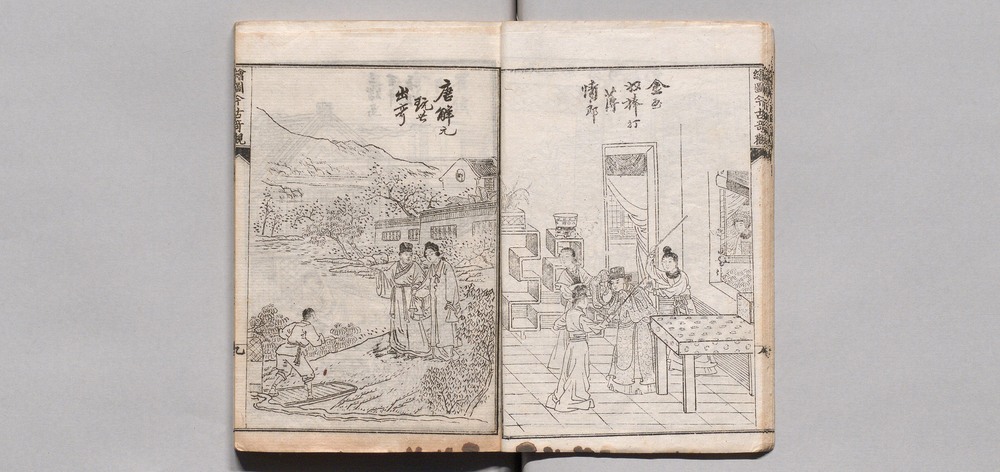 繪圖今古奇觀
金玉
奴棒打
薄
情郎
唐解元
玩世
出奇
繪圖今古奇觀
九